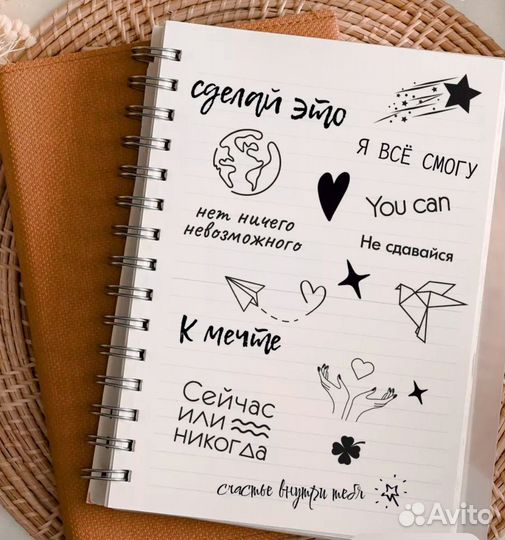 сделай это
Я ВСЁ СМОГУ
You can
нет ничего
невозможного
Не сдавайся
К мечте
Сейчас
или
никогда
счастье внутри тебя
Avito